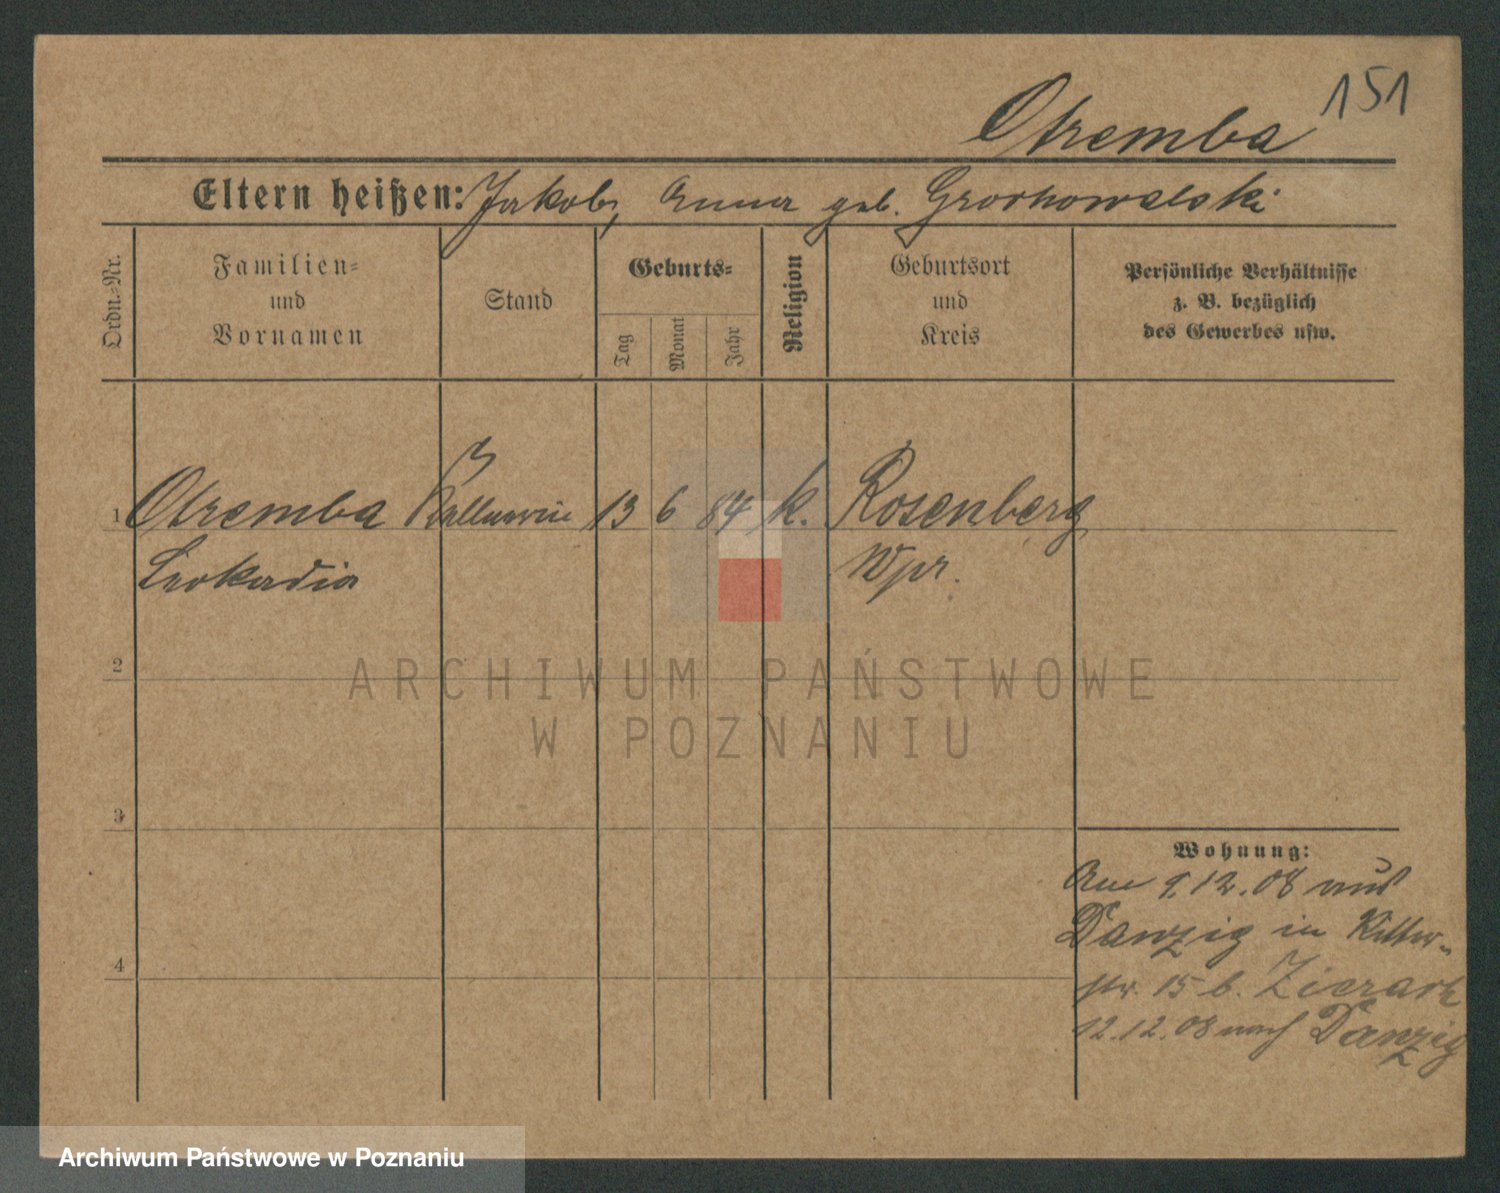 151
Otremba
Eltern heißen: Jakob, Anna geb. Grochowalski
Ordn.-Nr.
Familien-
und
Vornamen
Stand
Geburts-
Tag
Monat
Jahr
Religion
Geburtsort
und
Kreis
Persönliche Verhältnisse
z. B. bezüglich
des Gewerbes usw.
1 Otremba Kellnerin 13 6 84 k. Rosenberg
Leokadia Wpr.
2
ARCHIWUM PAŃSTWOWE
W POZNANIU
3
Wohnung:
Am 9.12.08 aus
Danzig in Ritter-
str. 15 b. Zierach
4
12.12.08 nach Danzig
Archiwum Państwowe w Poznaniu